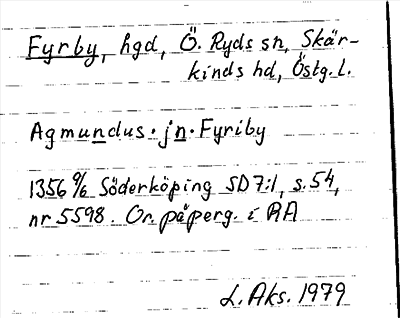 Fyrby, hgd, Ö. Ryds sn, Skär-
kinds hd, Östg. l.
Agmundus · jn · Fyriby
1356 6/6 Söderköping SD 7:1, s. 54,
nr 5598. Or. på perg. i RA
L. Aks. 1979